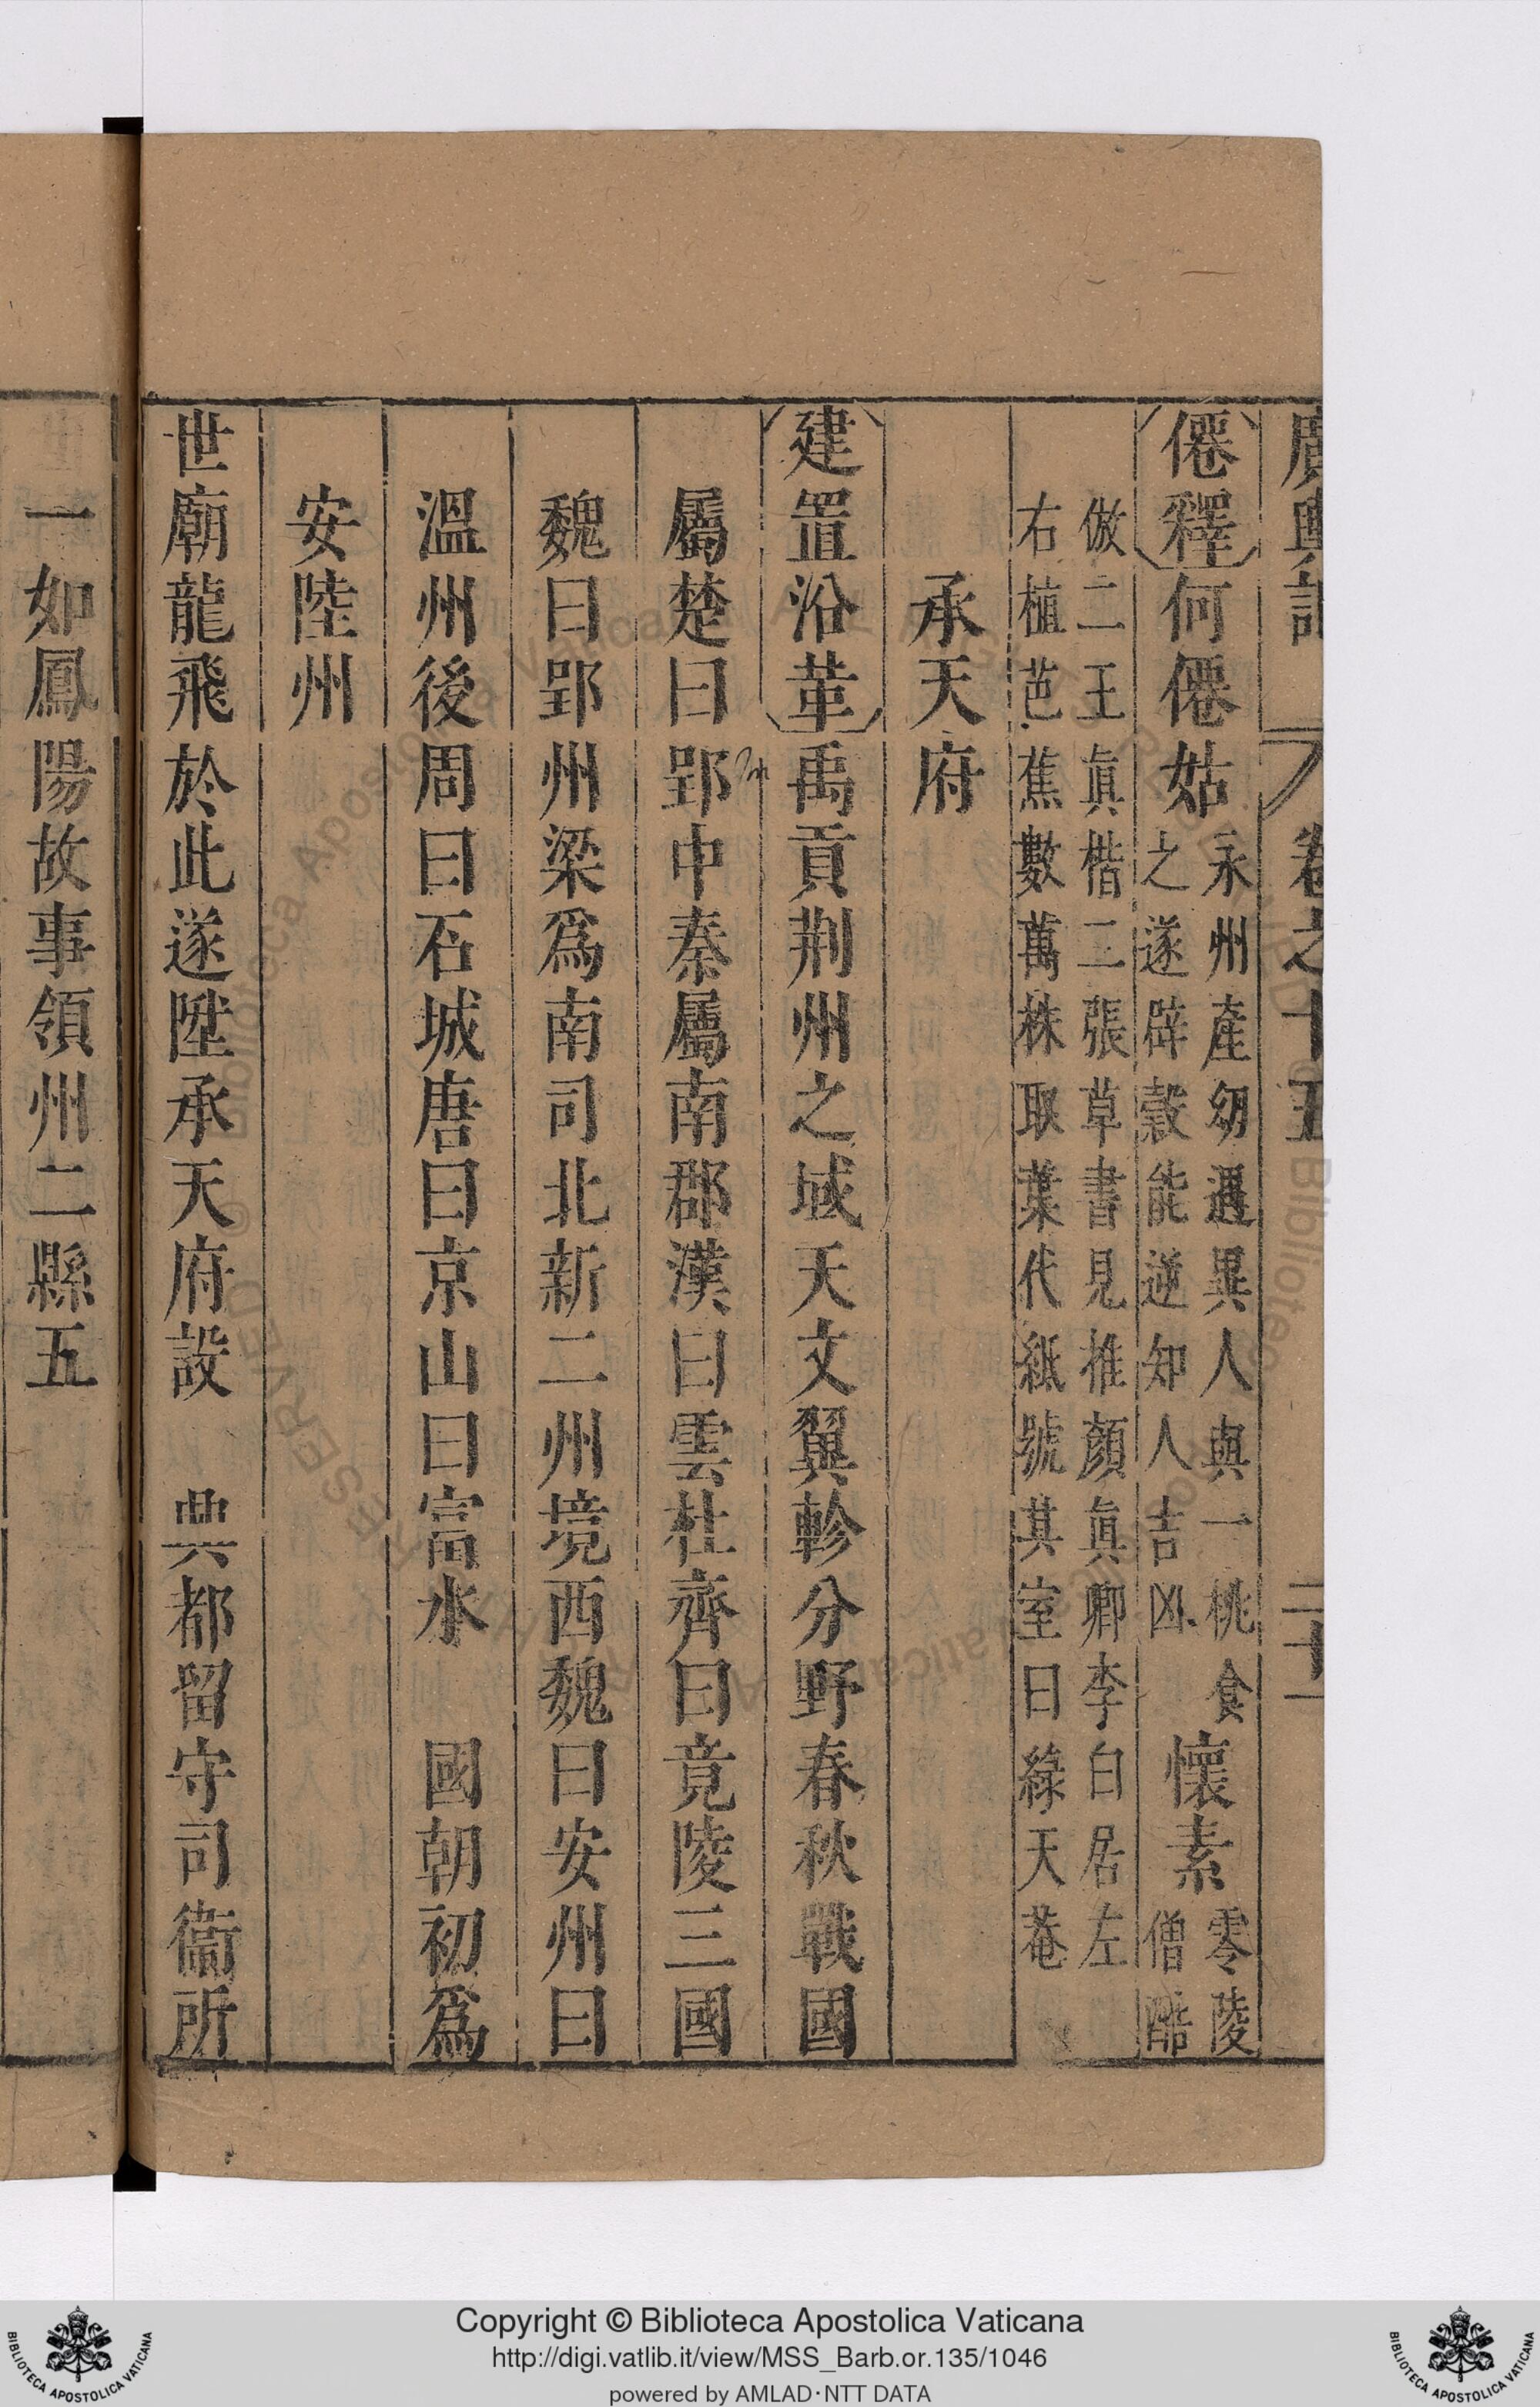 廣輿記 卷之十五 二十一
僊釋 何僊姑 永州產幼遇異人與一桃食 之遂辟穀能逆知人吉凶 懷素 零陵 僧酷
倣二王眞楷二張草書見推顏眞卿李白居左
右植芭蕉數萬株取葉代紙號其室曰綠天菴
承天府
建置沿革 禹貢荆州之域天文翼軫分野春秋戰國
屬楚曰郢中秦屬南郡漢曰雲杜齊曰竟陵三國
魏曰郢州梁爲南司北新二州境西魏曰安州曰
溫州後周曰石城唐曰京山曰富水 國朝初爲
安陸州
世廟龍飛於此遂陞承天府設 興都留守司衞所
一如鳳陽故事領州二縣五
Copyright © Biblioteca Apostolica Vaticana
http://digi.vatlib.it/view/MSS_Barb.or.135/1046
powered by AMLAD·NTT DATA
BIBLIOTECA APOSTOLICA VATICANA
BIBLIOTECA APOSTOLICA VATICANA